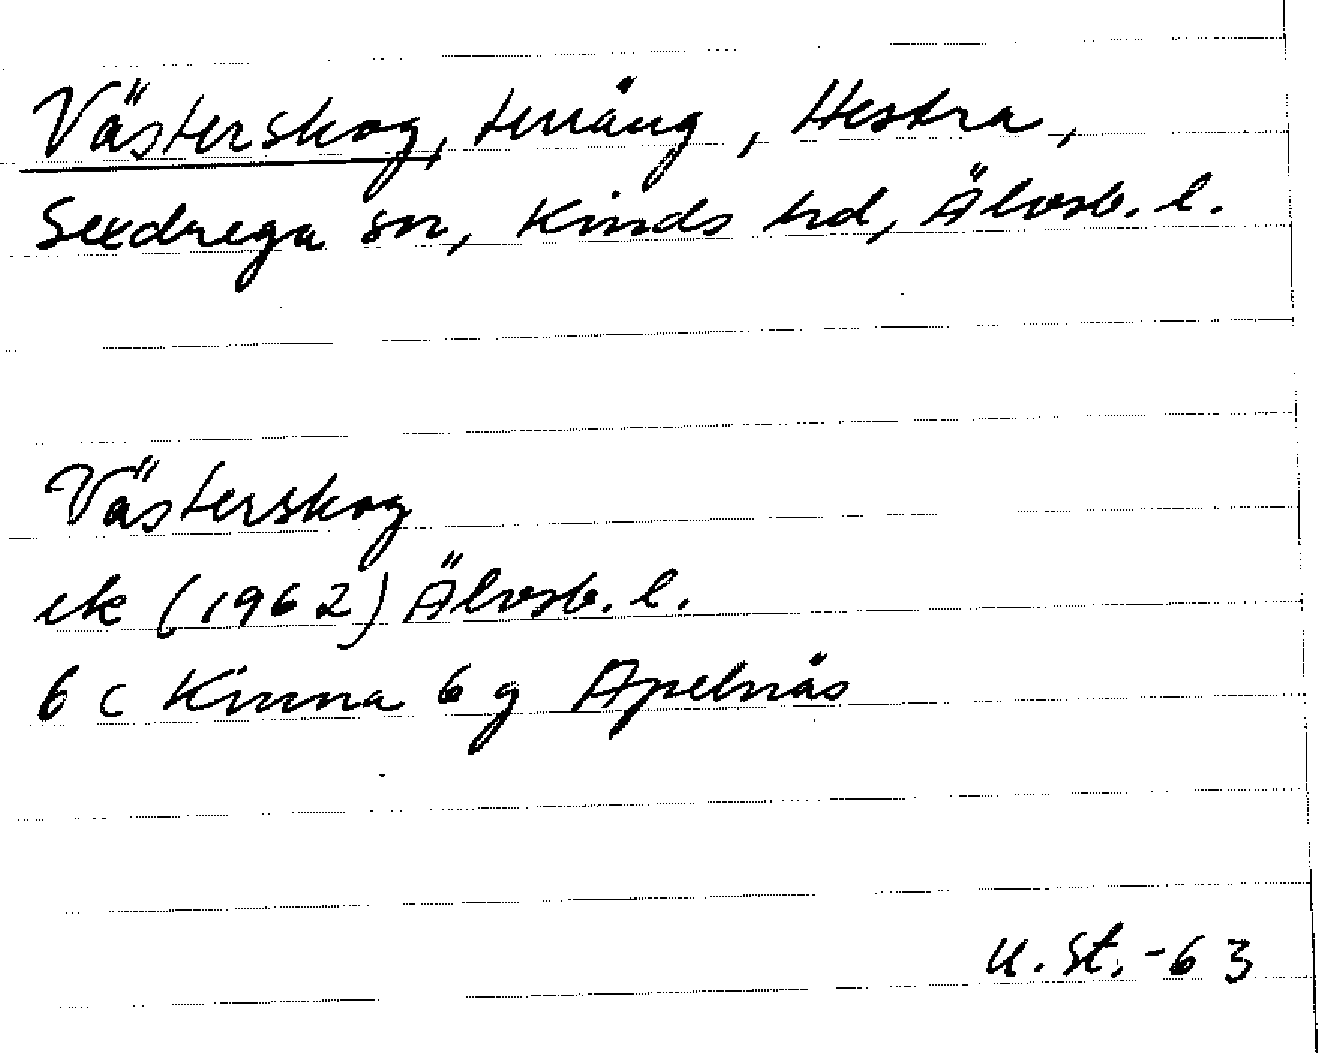 Västerskog, terräng, Hestra,
Sexdrega sn, Kinds hd, Älvsb. l.
Västerskog
ek (1962) Älvsb. l.
6 c Kinna 6 g Apelnäs
U. St. -63